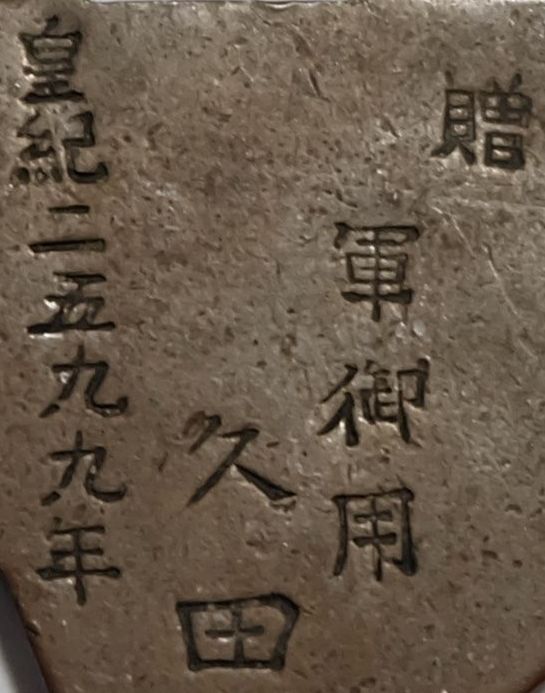 贈
軍御用
久田
皇紀二五九九年